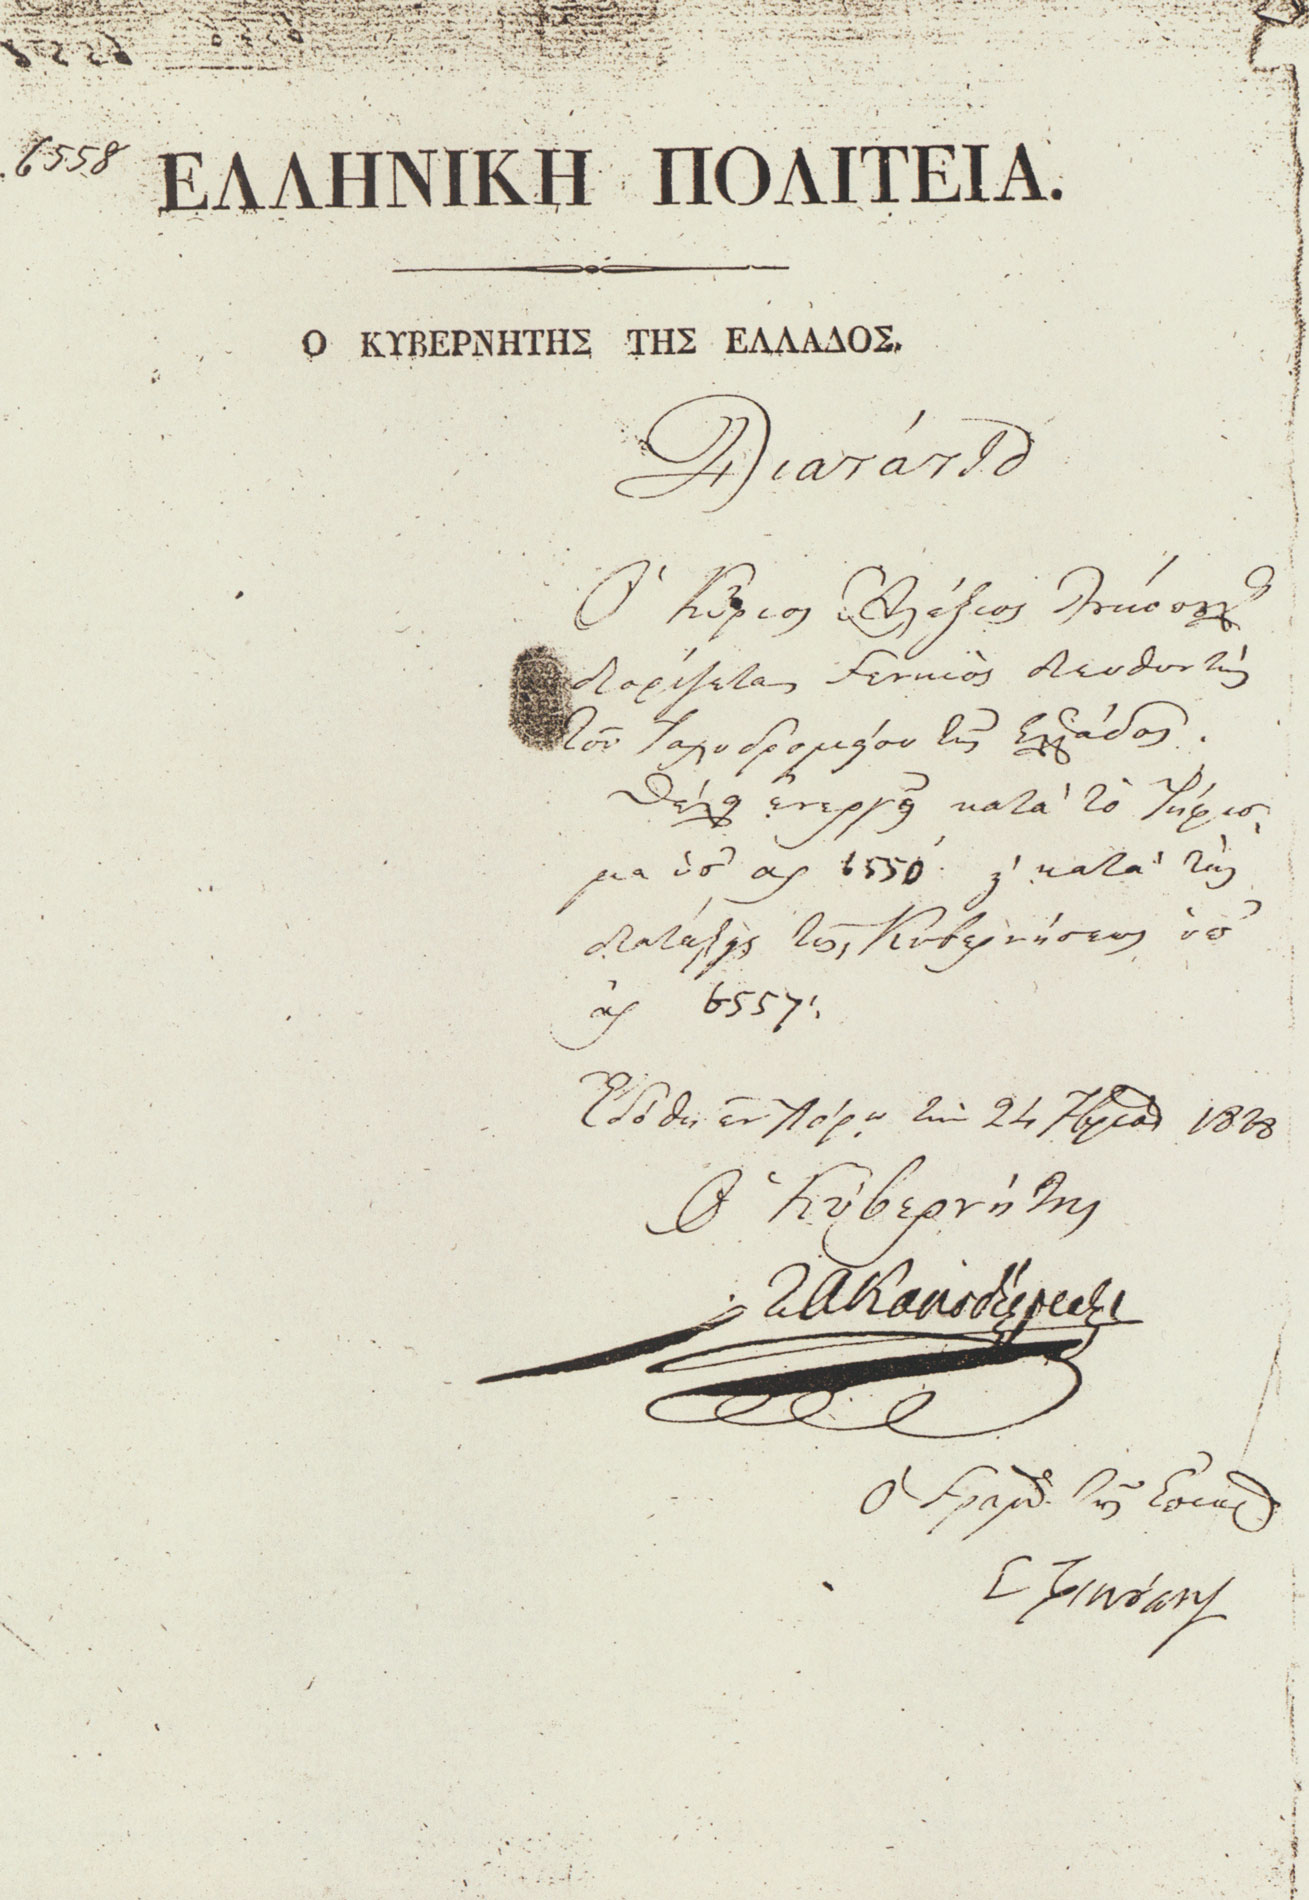 6558
ΕΛΛΗΝΙΚΗ ΠΟΛΙΤΕΙΑ.
Ο ΚΥΒΕΡΝΗΤΗΣ ΤΗΣ ΕΛΛΑΔΟΣ.
Διατάττει
Ὁ Κύριος Ἀλέξιος
διορίζεται Γενικὸς διευθυντὴς
τοῦ Ταχυδρομείου τῆς Ἑλλάδος.
Θέλει ἐνεργεῖ κατὰ τὸ Ψήφισ
μα ὑπ' ἀρ 6550 κατὰ τὰς
διατάξεις τῆς Κυβερνήσεως ὑπ'
ἀρ 6557.
Ἐδόθη ἐν Πόρῳ τὴν 24 1828
Ὁ Κυβερνήτης
Ι Α Καποδίστριας
Ὁ Γραμ τῆς Ἐπικρ
Σ Τρικούπης